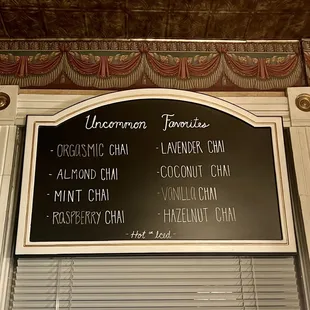 Uncommon Favorites
- ORGASMIC CHAI
- ALMOND CHAI
- MINT CHAI
- RASPBERRY CHAI
- LAVENDER CHAI
- COCONUT CHAI
- VANILLA CHAI
- HAZELNUT CHAI
- Hot or Iced -